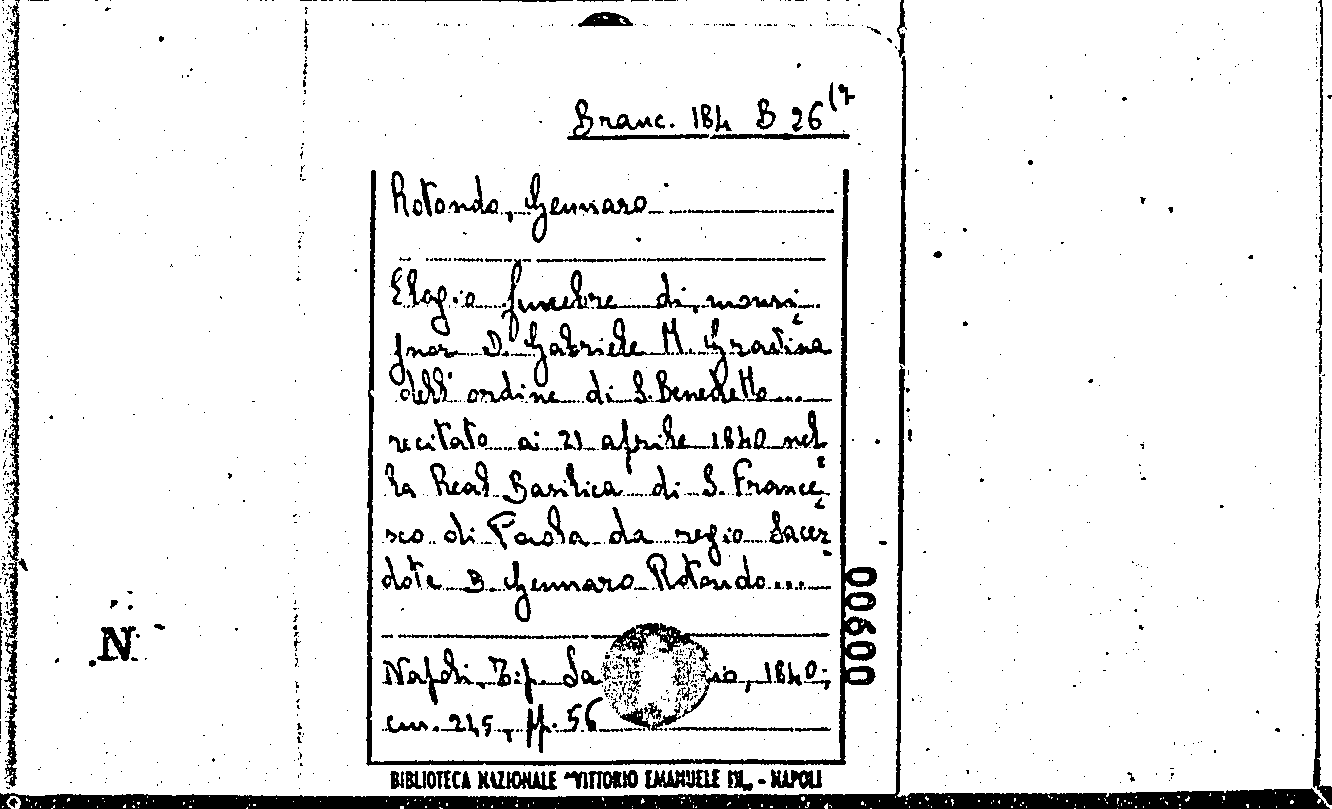 Branc. 184 B 26 (7
Rotondo, Gennaro
Elogio funebre di monsi-
gnor D. Gabriele M. Gravina
dell'ordine di S. Benedetto...
recitato ai 21 aprile 1840 nel-
la Real Basilica di S. France-
sco di Paola da regio Sacer-
dote D. Gennaro Rotondo...
Napoli, Tip. io, 1840;
cm. 245, pp. 56
BIBLIOTECA NAZIONALE "VITTORIO EMANUELE III" - NAPOLI
00600
N